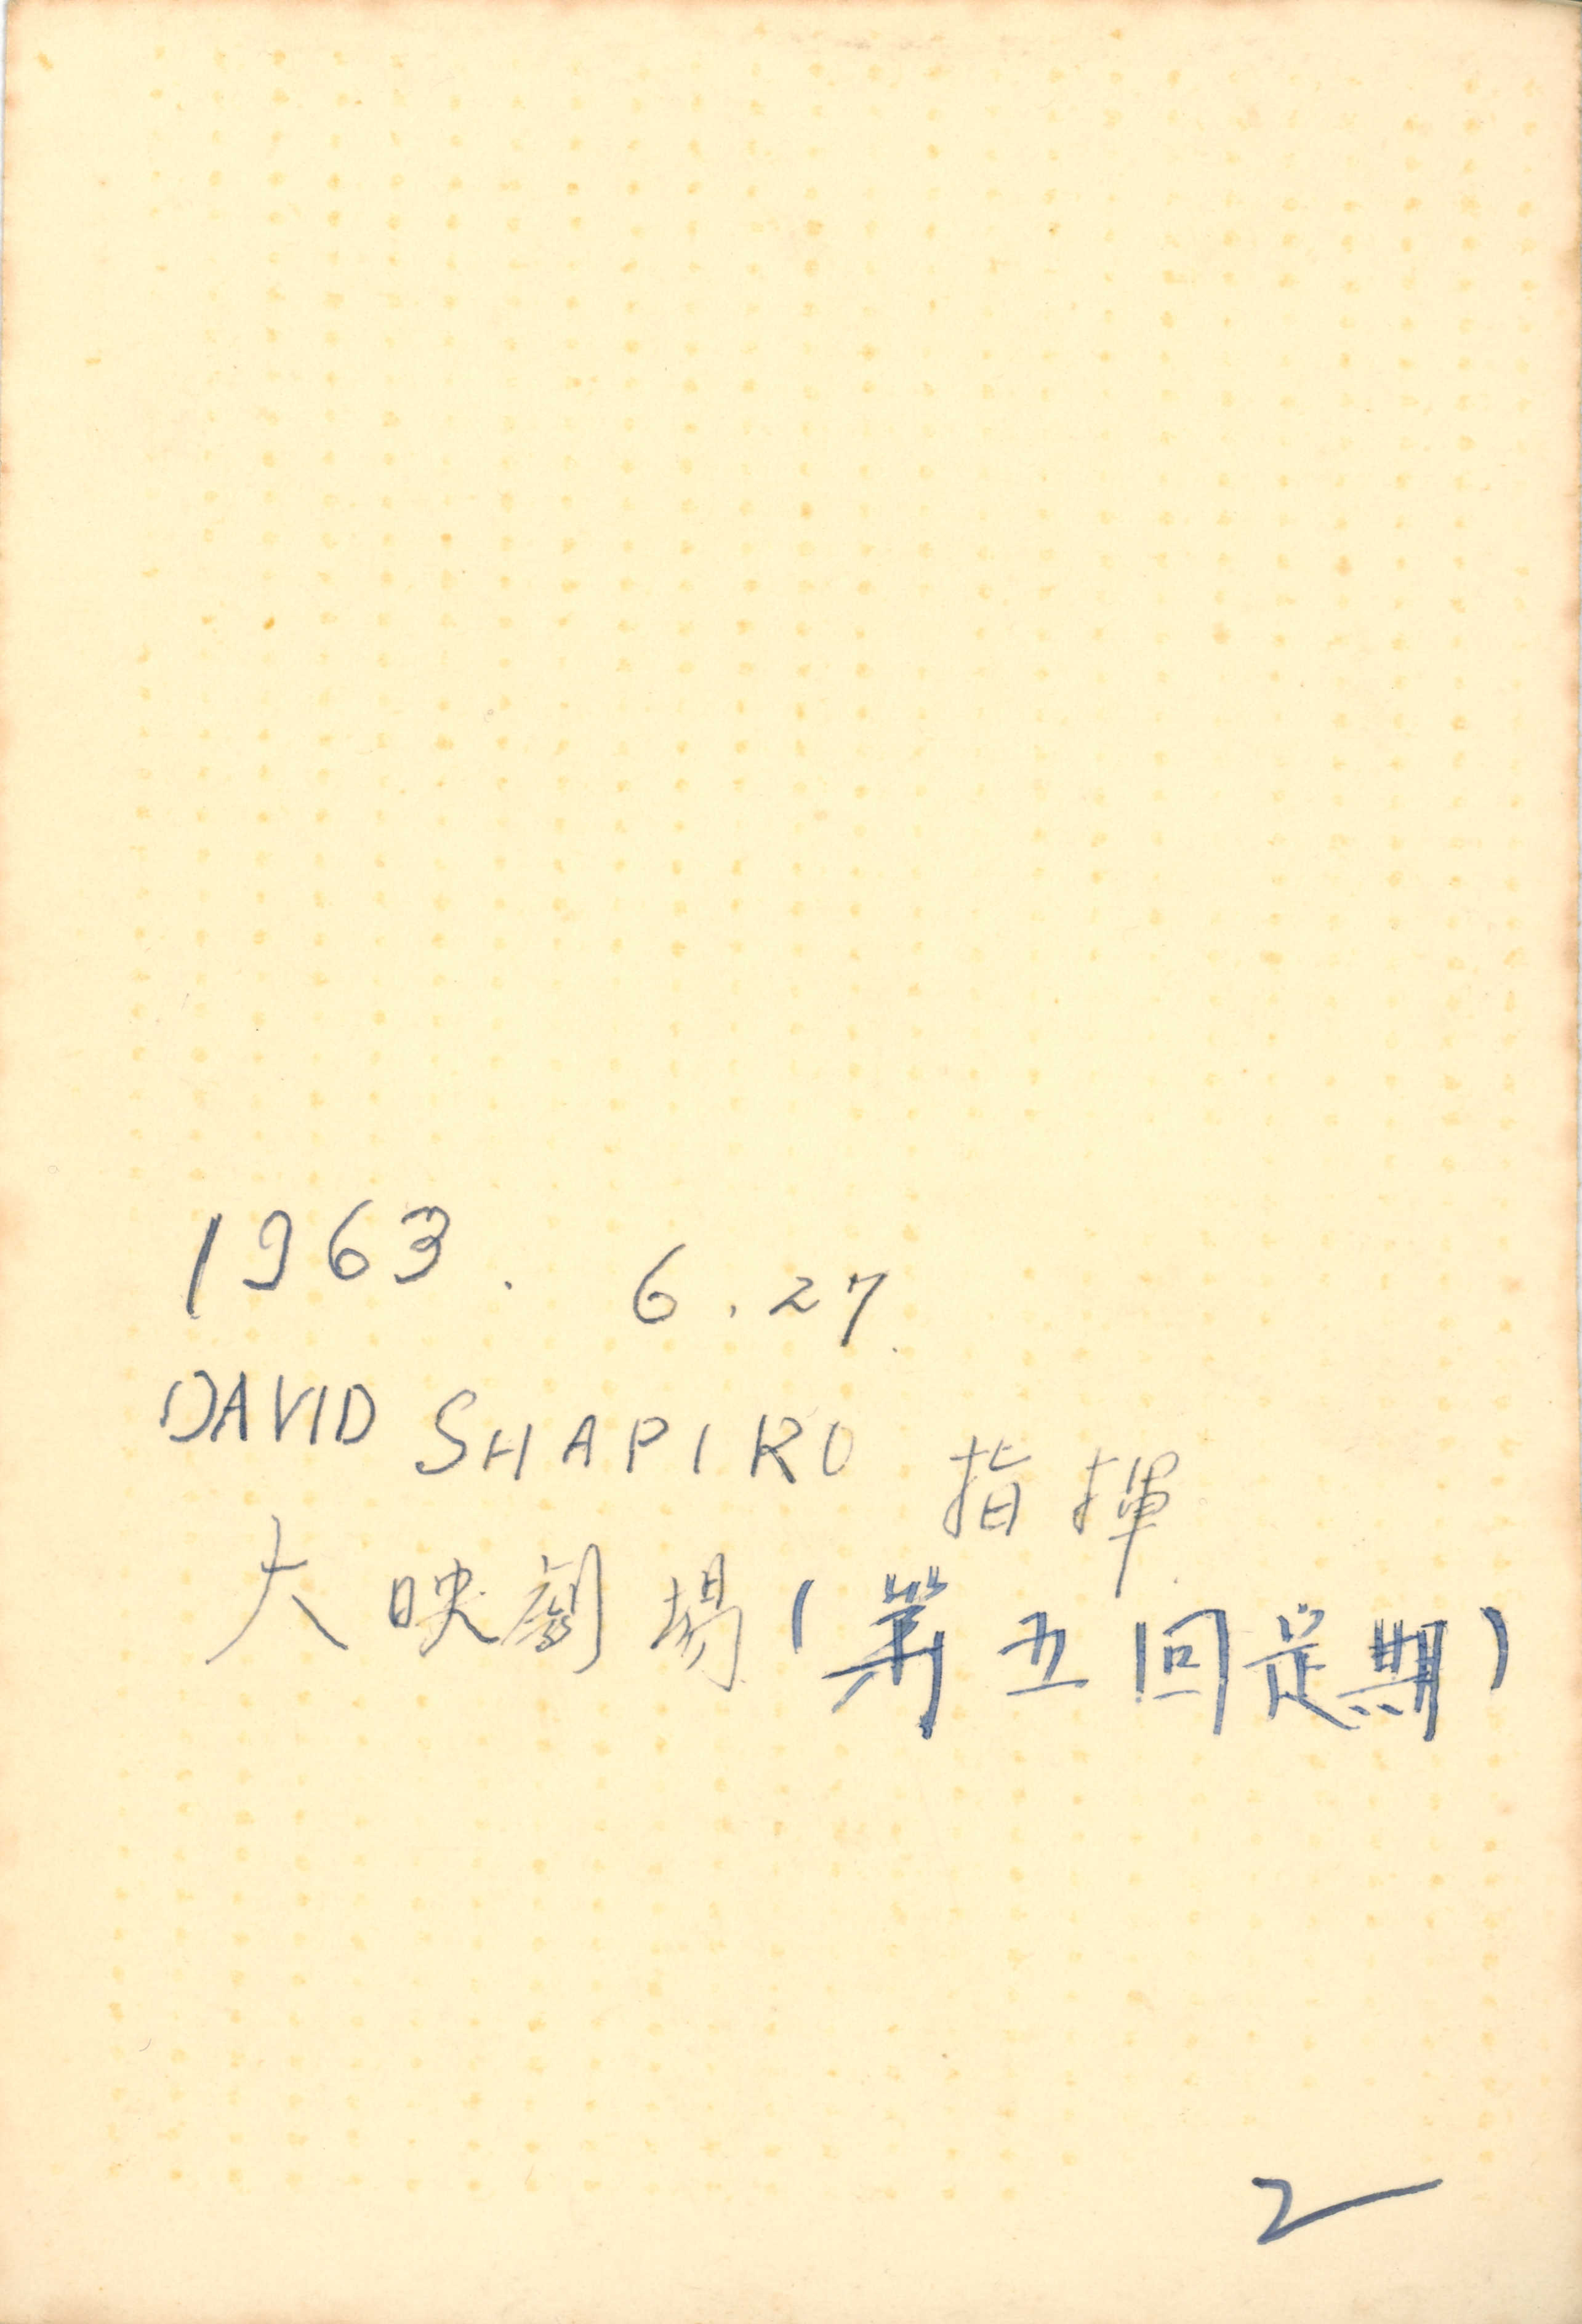 1963. 6.27.
DAVID SHAPIRO 指揮
大映劇場(第五回定期)
2